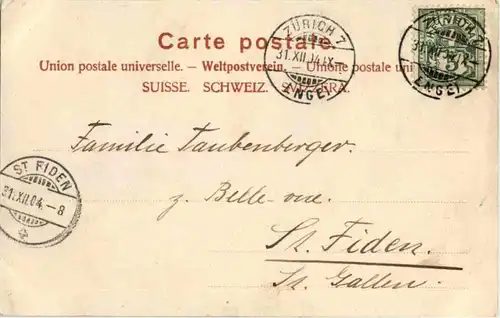 Carte postale.
Union postale universelle. — Weltpostverein. — Unione postale uni
SUISSE. SCHWEIZ. SVIZZERA.
ZÜRICH 7
31.XII.04.IX
ENGE
31.XII.04
ENGE
Familie Taubenberger.
z. Belle-vue
St. Fiden.
St. Gallen.
ST FIDEN
31.XII.04.–8